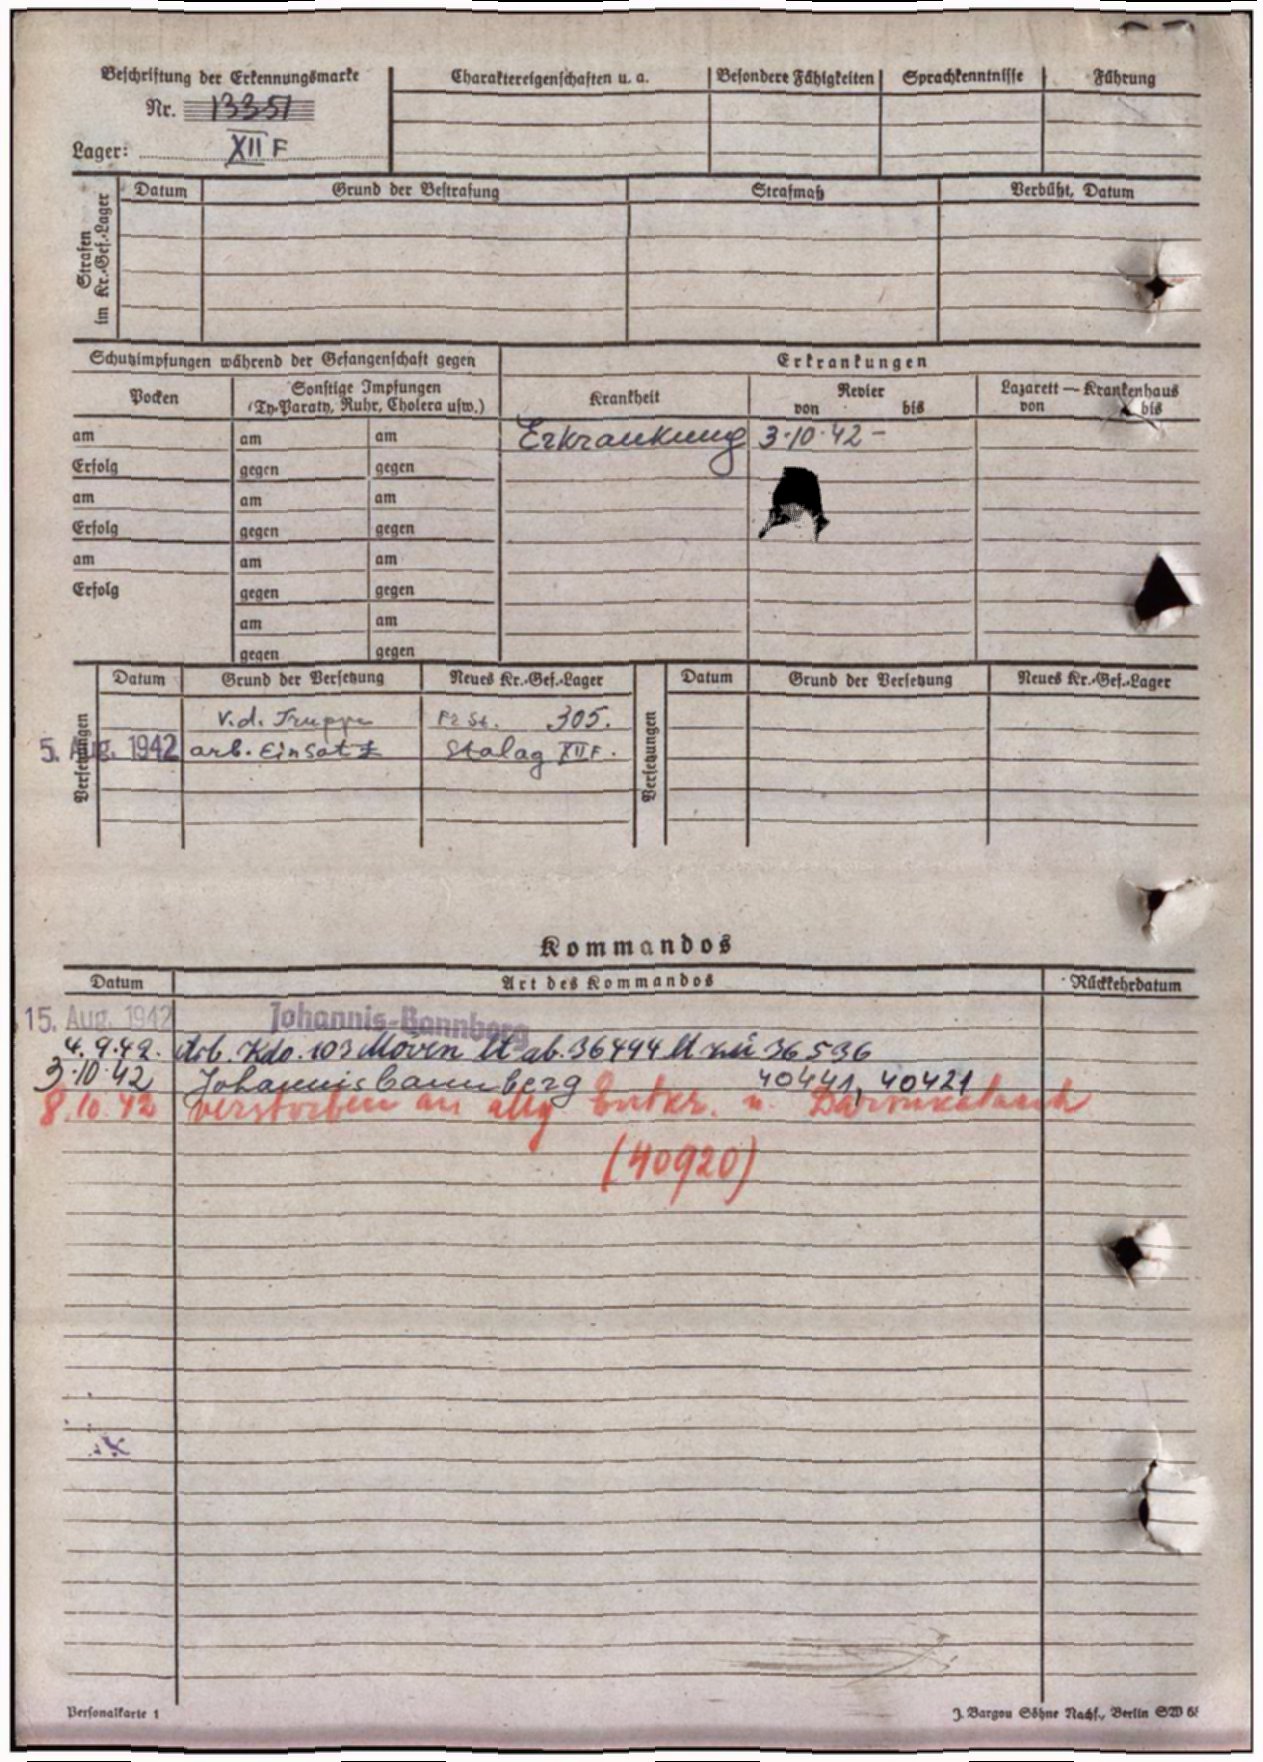 Beschriftung der Erkennungsmarke
Nr. 13351
Lager: XII F
Charaktereigenschaften u. a. Besondere Fähigkeiten Sprachkenntnisse Führung
Strafen im Kr.-Gef.-Lager
Datum Grund der Bestrafung Strafmaß Verbüßt, Datum
Schutzimpfungen während der Gefangenschaft gegen Erkrankungen
Pocken Sonstige Impfungen Krankheit Revier Lazarett — Krankenhaus
(Ty-Paraty, Ruhr, Cholera usw.) von bis von bis
am am am Erkrankung 3.10.42 -
Erfolg gegen gegen
am am am
Erfolg gegen gegen
am am am
Erfolg gegen gegen
am am
gegen gegen
Versetzungen Datum Grund der Versetzung Neues Kr.-Gef.-Lager Versetzungen Datum Grund der Versetzung Neues Kr.-Gef.-Lager
v.d. Truppe St. 305.
5. Aug. 1942 arb. Einsatz Stalag XII F.
Kommandos
Datum Art des Kommandos Rückkehrdatum
15. Aug. 1942 Johannis-Bannberg
4.9.42. Arb. Kdo. 103 Möven lt ab. 36494 lt zu 36536
3.10.42 Johannisbannberg 40441, 40421
8.10.42 verstorben an allg Entkr. u. Darmkatarrh
(40920)
Personalkarte 1
J. Bargou Söhne Nachf., Berlin SW 68